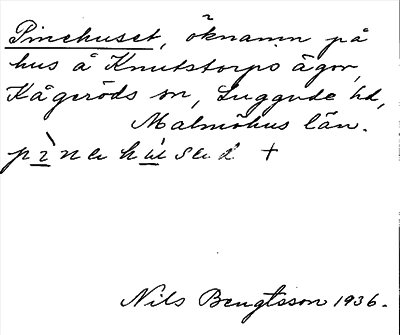 Pinehuset, öknamn på
hus å Knutstorps ägor,
Kågeröds sn, Luggude hd,
Malmöhus län.
pìnahu̇sad +
Nils Bengtsson 1936.